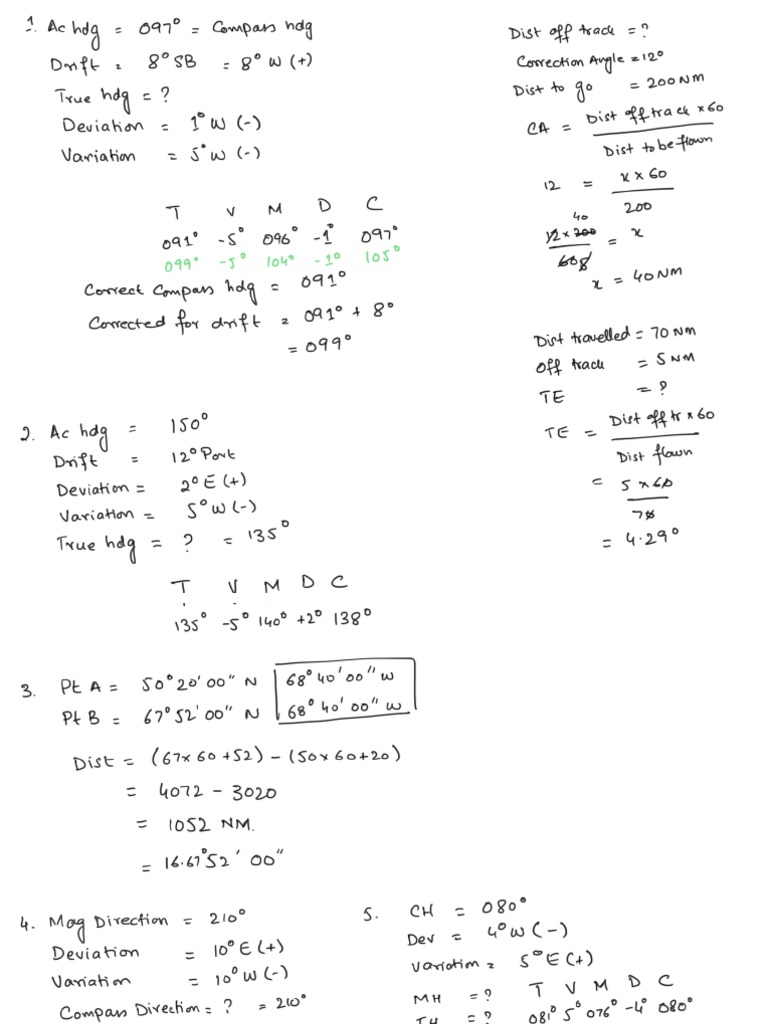 1. Ac hdg = 097° = Compass hdg
Drift = 8° SB = 8° W (+)
True hdg = ?
Deviation = 1° W (-)
Variation = 5° W (-)
T V M D C
091° -5° 096° -1° 097°
099° -5° 104° -1° 105°
Correct Compass hdg = 091°
Corrected for drift = 091° + 8°
= 099°
Dist off track = ?
Correction Angle = 12°
Dist to go = 200 NM
CA = Dist off track × 60
Dist to be flown
12 = x × 60
200
40
12 × 200 = x
60
x = 40 NM
Dist travelled = 70 NM
Off track = 5 NM
TE = ?
TE = Dist off tr × 60
Dist flown
= 5 × 60
70
= 4.29°
2. Ac hdg = 150°
Drift = 12° Port
Deviation = 2° E (+)
Variation = 5° W (-)
True hdg = ? = 135°
T V M D C
135° -5° 140° +2° 138°
3. Pt A = 50° 20' 00" N 68° 40' 00" W
Pt B = 67° 52' 00" N 68° 40' 00" W
Dist = (67 × 60 + 52) - (50 × 60 + 20)
= 4072 - 3020
= 1052 NM.
= 16.67° 52' 00"
4. Mag Direction = 210°
Deviation = 10° E (+)
Variation = 10° W (-)
Compass Direction = ? = 210°
5. CH = 080°
Dev = 4° W (-)
Variation = 5° E (+)
MH = ? T V M D C
TH = ? 081° 5° 076° -4° 080°